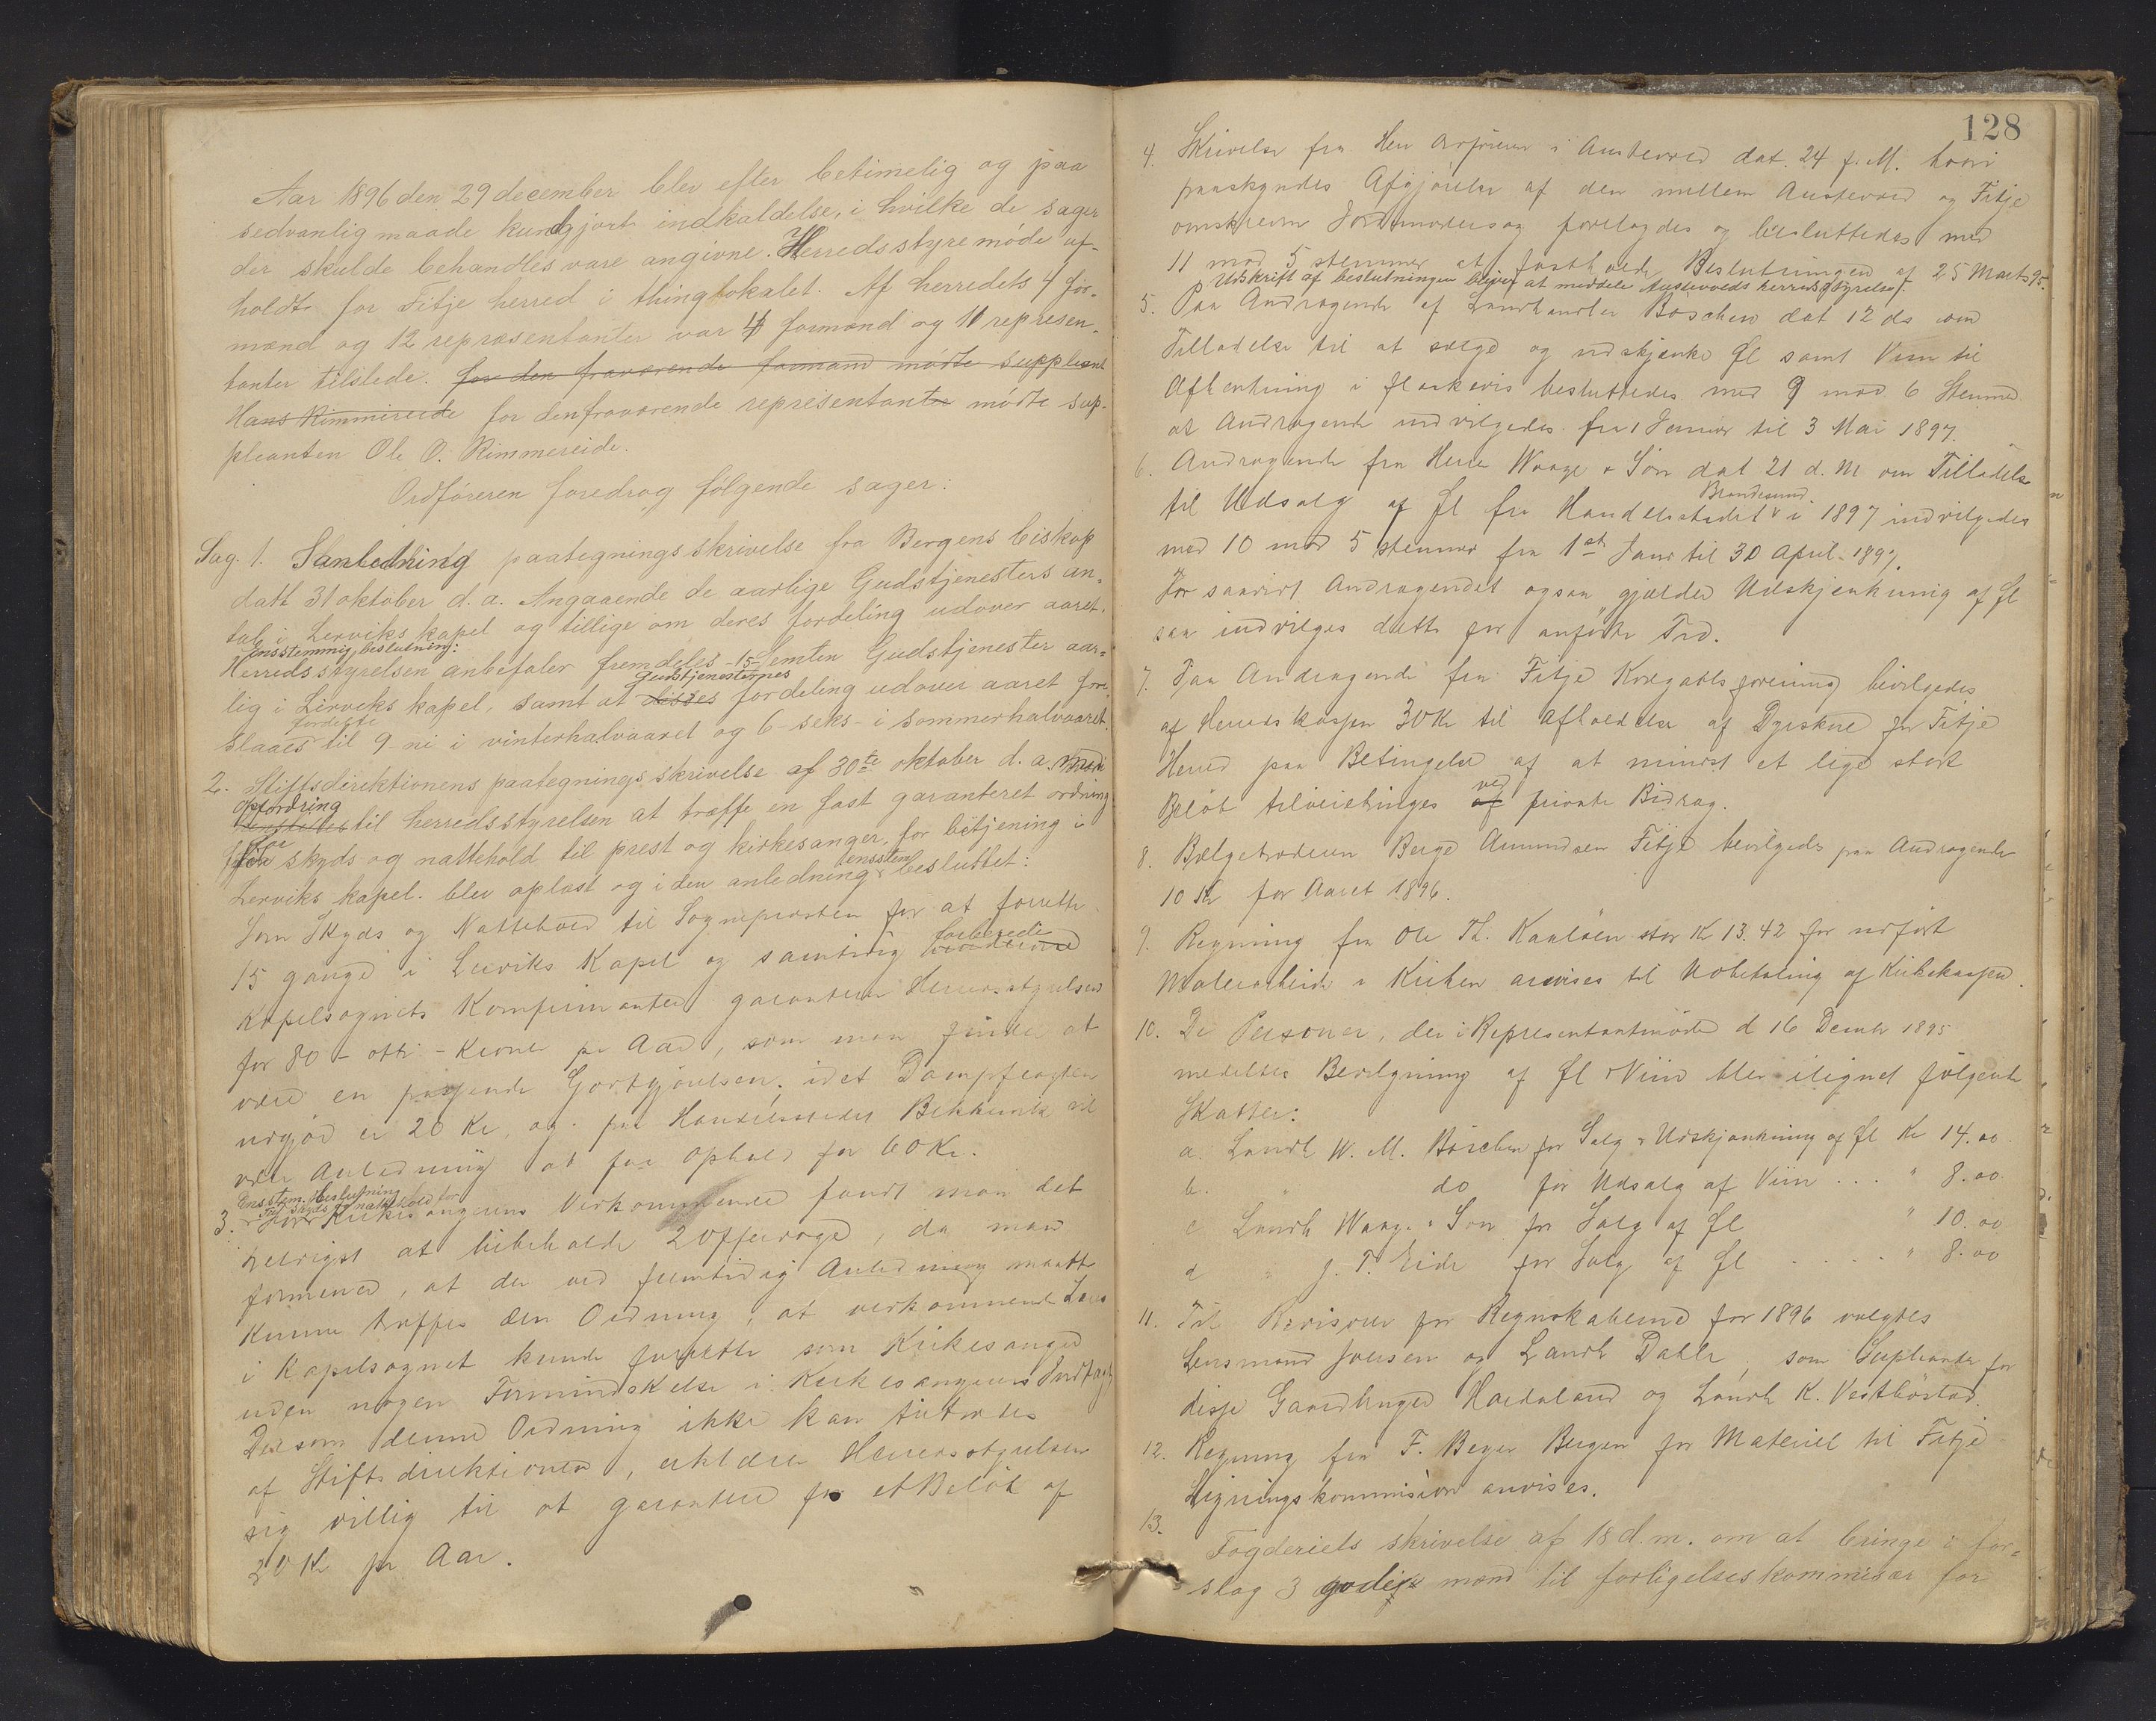 Aar 1896 den 29 december blev efter betimelig og paa
sedvanlig maade kundgjort indkaldelse, i hvilke de sager
der skulde behandles vare angivne. Herredsstyremöde af-
holdt for Fitje herred i thinglokalet. Af herredets 4 for-
mænd og 12 repræsentanter var 4 formænd og 11 represen-
tanter tilstede. for den fraværende formand mödte suppleant
Hans Rimmereide for den fraværende representanter mödte sup-
pleanten Ole O. Rimmereide.
Ordföreren foredrog fölgende sager:
Sag. 1. I anledning paategningsskrivelse fra Bergens biskop
datt 31 oktober d. a. Angaaende de aarlige Gudstjenesters an-
tal i Lerviks kapel og tillige om deres fordeling udover aaret.
Ensstemmig beslutning:
Herredsstyrelsen anbefaler fremdeles -15- femten Gudstjenester aar-
gudstjenesternes
lig i Lerviks kapel, samt at disses fordeling udover aaret fore-
fordeste
slaaes til 9 ni i vinterhalvaaret og 6 - seks - i sommerhalvaaret.
2. Stiftsdirektionens paategningsskrivelse af 30te oktober d. a. med
opfordring
til herredsstyrelsen at træffe en fast garanteret ordning
for skyds og nattehold til prest og kirkesanger, for betjening i
ensstem
Lerviks kapel. blev oplæst og i den anledning besluttet:
Som Skyds og Nattehold til Sogneprästen for at forrette
forberede
15 gange i Lerviks Kapel og samtidig
Kapelsognets Konfirmanter garanterer Herredsstyrelsen
for 80 - otti - Kroner pr Aar, som man finder at
være en passende Godtgjörelse, idet Dampfragten
udgjör er 20 Kr, og paa Handelsstedet Bekkervik vil
være Anledning at faa Ophold for 60 Kr.
Ensstem. beslutning
Til Skyds og nattehold for
3. For Kirkesangerens Vedkommende fandt man det
heldigst at bibeholde 2 Offerdage, da man
formener, at der ved fremtidig Anledning maatte
kunne træffes den Ordning, at vedkommende Lærer
i Kapelsognet kunde forrette som Kirkesanger
uden nogen Formindskelse i Kirkesangerens Indtægt
Dersom denne Ordning ikke kan tiltrædes
af Stiftsdirektionen, erklærer Herredsstyrelsen
sig villig til at garantere for et Belöb af
20 Kr pr Aar.
128
4. Skrivelse fra Herr Ordförer i Austevold dat. 24 f. M. hvori
paaskyndes Afgjörelse af den mellem Austevold og Fitje
omskrevne Jordmodersag forelagdes og besluttedes med
11 mod 5 stemmer at fastholde Beslutningen af 25 Marts 95.
Udskrift af beslutningen blev at meddele Austevolds herredsstyrelse
5. Paa Andragende af Landhandler Böschen dat 12 ds om
Tilladelse til at sælge og udskjænke Öl samt Viin til
Afhentning i flaskevis besluttedes med 9 mod 6 Stemmer
at Andragende indvilgedes fra 1 Januar til 3 Mai 1897.
6. Andragende fra Herr Waage & Sön dat 21 d. M om Tilladelse
Brandesund
til Udsalg af Öl fra Handelsstedet i 1897 indvilgedes
med 10 mod 5 stemmer fra 1st Janr til 30 April 1897.
For saavidt Andragendet ogsaa gjælder Udskjenkning af Öl
saa indvilges dette for anförte Tid.
7. Paa Andragende fra Fitje Kvægavlsforening bevilgedes
af Herredskassen 30 Kr til Afholdelse af Dyrskue for Fitje
Herred paa Betingelse af at mindst et lige stort
ved
Belöb tilveiebringes af private Bidrag.
8. Bælgetræderen Berge Amundsen Fitje bevilgedes paa Andragende
10 Kr for Aaret 1896.
9. Regning fra Ole Th. Kaaløen stor Kr 13.42 for udfört
Malerarbeide i Kirken anvises til Udbetaling af Kirkekassen.
10. De Personer, der i Representantmöde d 16 Decmbr 1895
meddeltes Bevilgning af Öl & Viin blev ilignet fölgende
Skatter:
a. Landh W. M. Böschen for Salg & Udskjænkning af Öl Kr 14.00
b. " do for Udsalg af Viin ... " 8.00
c Landh Waage & Sön for Salg af Öl " 10.00
d " J. T. Eide for Salg af Öl .... " 8.00
11. Til Revisorer for Regnskaberne for 1896 valgtes
Lensmand Iversen og Landh Dahle som Supleanter for
disse Gaardbruger Hordaland og Landh K. Vestböstad.
12. Regning fra F. Beyer Bergen for Materiel til Fitje
Ligningskommission anvises.
13.
Fogderiets skrivelse af 18 d. m. om at bringe i for-
slag 3 mænd til forligelseskommisær for